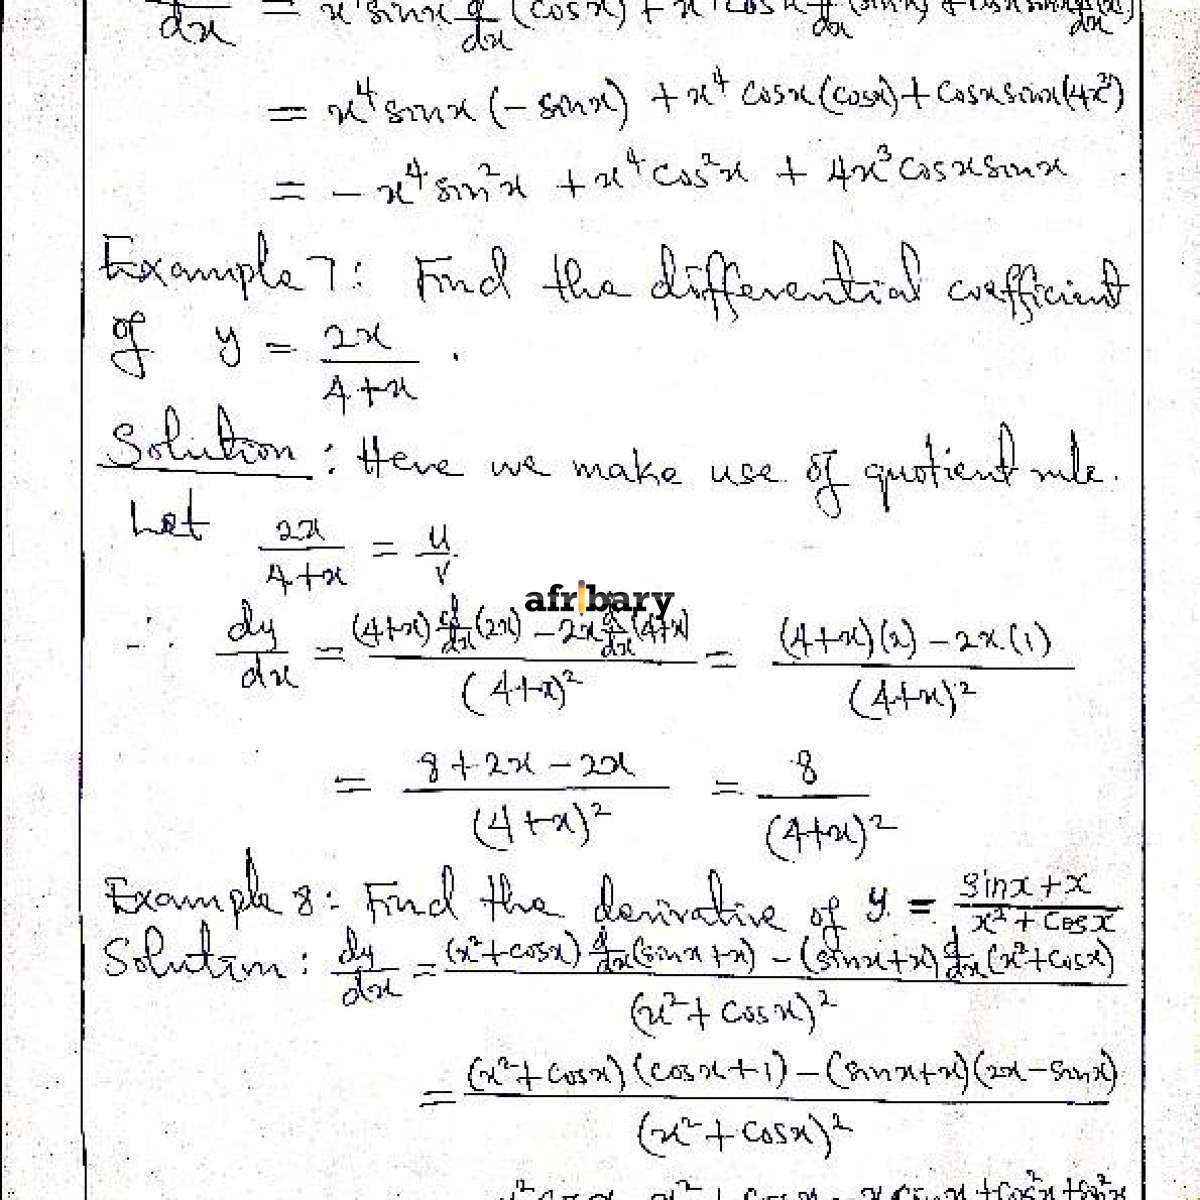 dy/dx = x⁴ sinx d/dx (cosx) + x⁴ cosx d/dx (sinx) + cosx sinx d/dx (x⁴)
= x⁴ sinx (- sinx) + x⁴ cosx (cosx) + cosx sinx (4x³)
= - x⁴ sin²x + x⁴ cos²x + 4x³ cosx sinx
Example 7: Find the differential coefficient
of y = 2x/(4+x) .
Solution : Here we make use of quotient rule.
Let 2x/(4+x) = u/v
afribary
∴ dy/dx = ((4+x) d/dx (2x) - 2x d/dx (4+x))/(4+x)² = ((4+x)(2) - 2x.(1))/(4+x)²
= (8 + 2x - 2x)/(4+x)² = 8/(4+x)²
Example 8: Find the derivative of y = (sinx+x)/(x²+cosx)
Solution: dy/dx = ((x²+cosx) d/dx (sinx+x) - (sinx+x) d/dx (x²+cosx))/(x²+cosx)²
= ((x²+cosx)(cosx+1) - (sinx+x)(2x-sinx))/(x²+cosx)²